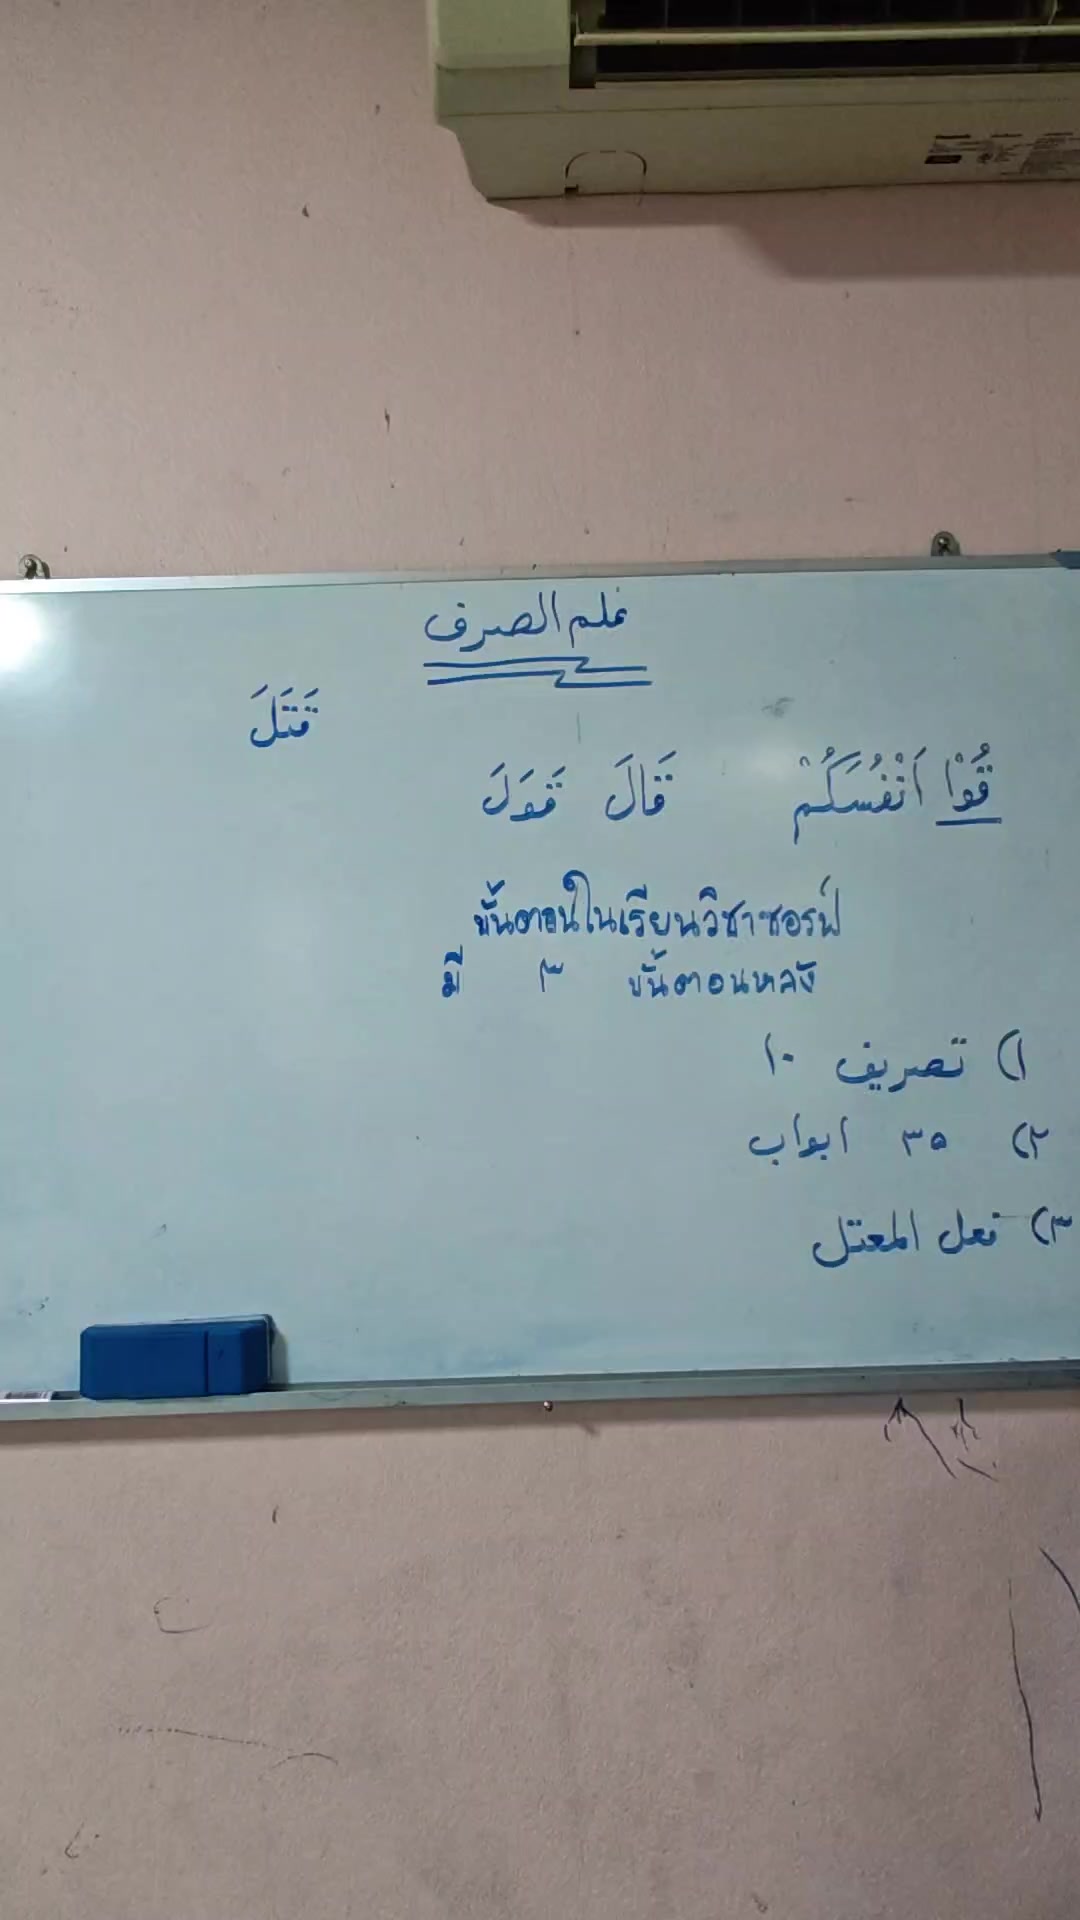 علم الصرف
قَتَلَ
قُوْا اَنْفُسَكُمْ قَالَ قَوَلَ
ขั้นตอนในเรียนวิชาซอรฟ์
มี ٣ ขั้นตอนหลัง
١) تصريف ١٠
٢) ٣٥ ابواب
٣) فعل المعتل